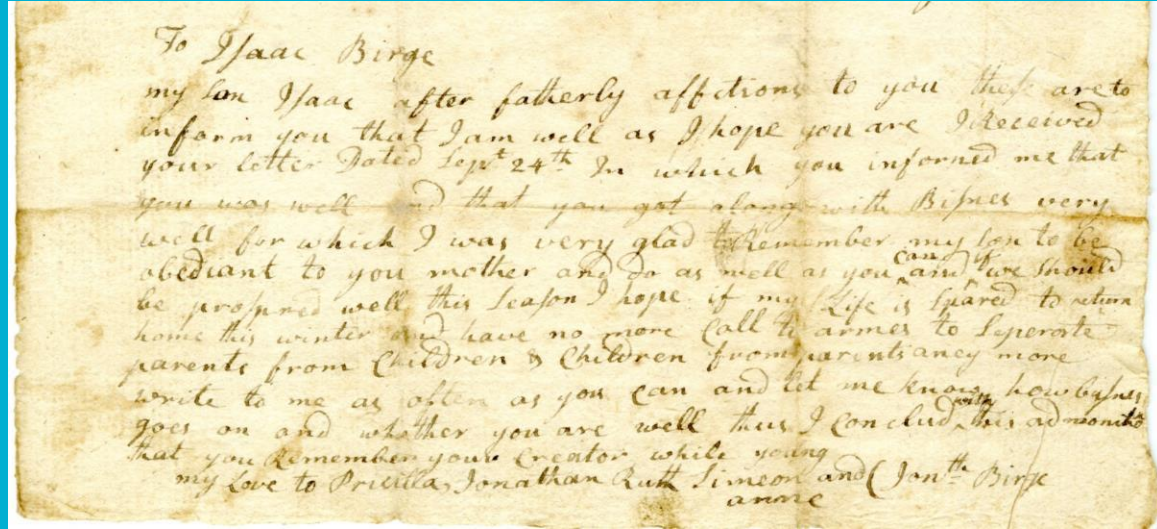 To Isaac Birge
my Son Isaac after fatherly affctions to you these are to
inform you that I am well as I hope you are I Received
your letter Dated Sept 24th In which you informed me that
you was well and that you got along with Bisnes very
well for which I was very glad Remember my son to be
obediant to you mother and do as well as you can and if we should
be prospred well this Season I hope if my Life is Spared to return
home this winter and have no more Call to armes to Seperate
parents from Children & Children from parents aney more
write to me as often as you can and let me know how busnes
goes on and whether you are well thus I Conclud with this admonition
that you Remember your Creator while young
my Love to Pricilla Jonathan Ruth Simeon and (Jonth Birge
anne